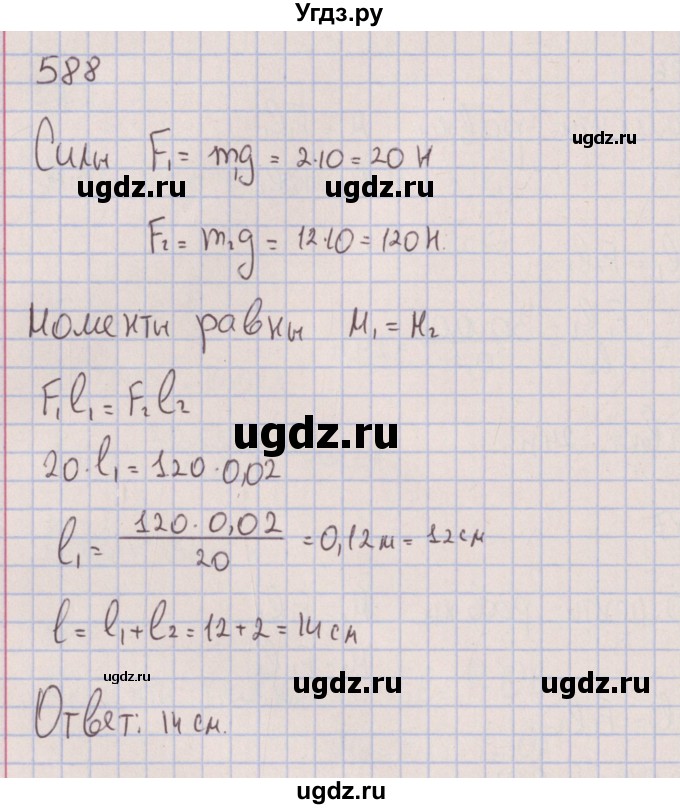 Угдз.ру
588
ugdz.ru
Силы F₁ = m₁g = 2·10 = 20 Н
ugdz.ru ugdz.ru
F₂ = m₂g = 12·10 = 120 Н.
Моменты равны M₁ = M₂
F₁l₁ = F₂l₂
ugdz.ru
20·l₁ = 120·0,02
l₁ = 120·0,02 / 20 = 0,12 м = 12 см
l = l₁ + l₂ = 12 + 2 = 14 см
ugdz.ru ugdz.ru ugdz.ru
Ответ: 14 см.
ugdz.ru